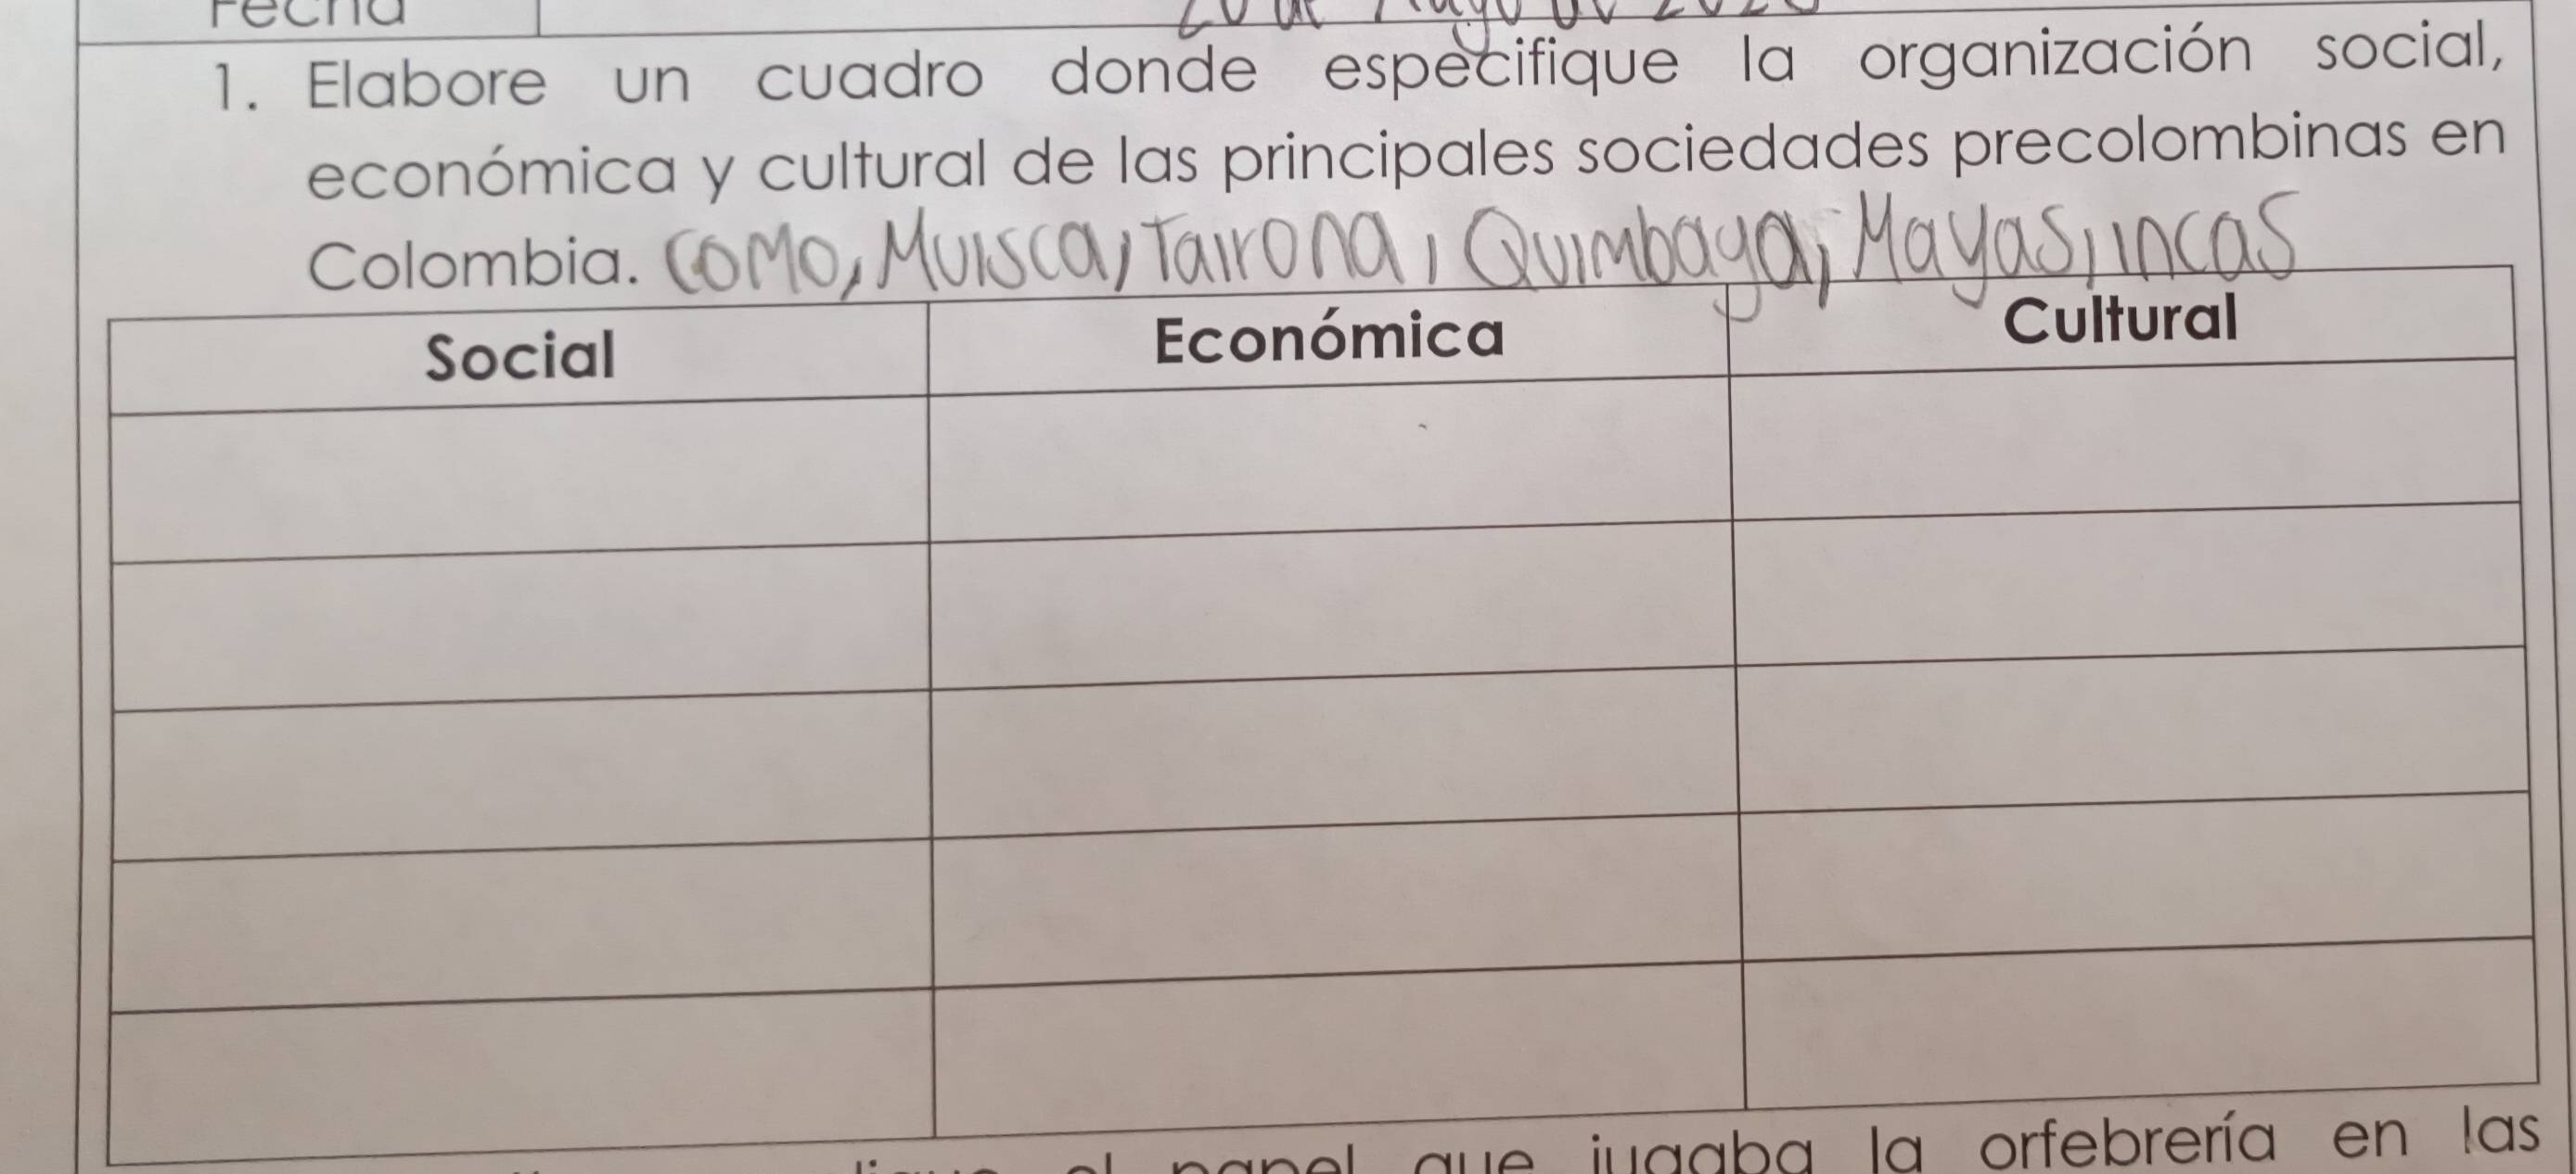 Fecha 20 de Mayo de
1. Elabore un cuadro donde especifique la organización social,
económica y cultural de las principales sociedades precolombinas en
Colombia. como, Muisca, Tairona, Quimbaya, Mayas, incas
Social Económica Cultural
el papel que jugaba la orfebrería en las